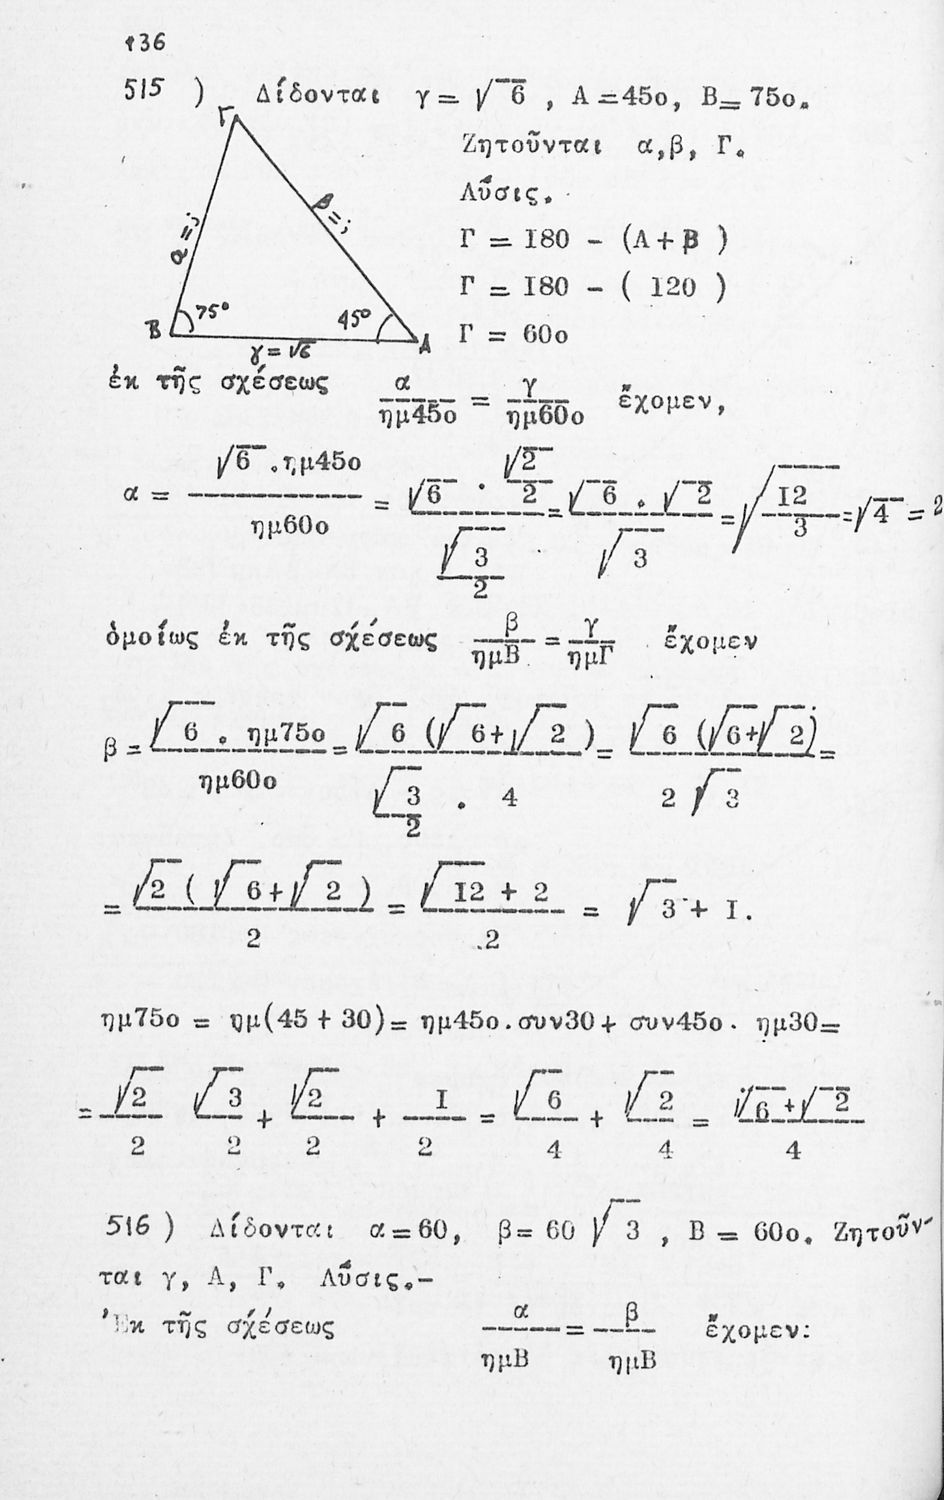 136
515 ) Δίδονται γ = √6 , A =45o, B= 75o.
Ζητοῦνται α,β, Γ.
Λῦσις.
Γ = I80 - (A + B )
Γ = I80 - ( 120 )
Γ = 60o
Γ
α = ;
β = ;
B 75° 45° A
γ = √6
ἐκ τῆς σχέσεως α/ημ45o = γ/ημ60o ἔχομεν,
α = √6 .ημ45o / ημ60o = √6 . √2/2 / √3/2 = √6 . √2 / √3 = √I2/3 = √4 = 2
ὁμοίως ἐκ τῆς σχέσεως β/ημB = γ/ημΓ ἔχομεν
β = √6 . ημ75o / ημ60o = √6 (√6+√2 ) / √3/2 . 4 = √6 (√6+√2) / 2 √3 =
= √2 ( √6+√2 ) / 2 = √I2 + 2 / 2 = √3 + I.
ημ75o = ημ(45 + 30)= ημ45o.συν30+ συν45o. ημ30=
= √2/2 √3/2 + √2/2 + I/2 = √6/4 + √2/4 = √6 +√2 / 4
516 ) Δίδονται α=60, β= 60 √3 , B = 60o. Ζητοῦν-
ται γ, A, Γ. Λῦσις.-
Ἐκ τῆς σχέσεως α/ημB = β/ημB ἔχομεν: